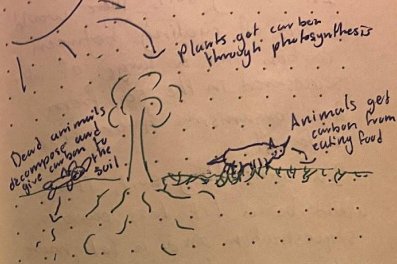 Plants get carbon
through photosynthesis
Animals get
carbon from
eating food
Dead animals
decompose and
give carbon to
the
soil